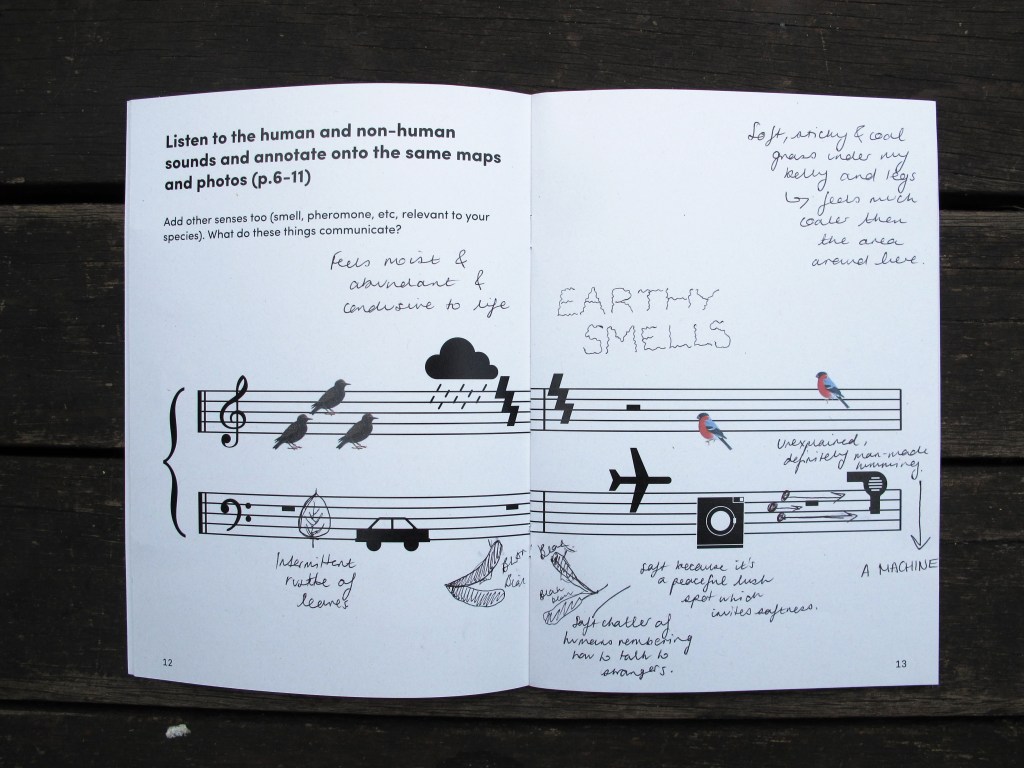 Listen to the human and non-human
sounds and annotate onto the same maps
and photos (p.6-11)
Add other senses too (smell, pheromone, etc, relevant to your
species). What do these things communicate?
Feels moist &
abundant &
conducive to life
Intermittent
rustle of
leaves
Blah
12
Soft, sticky & cool
grass under my
belly and legs
↳ feels much
cooler then
the area
around here.
EARTHY
SMELLS
Unexplained,
definitely man-made
humming.
A MACHINE
Blah
Blah
Soft because it's
a peaceful lush
spot which
invites softness.
Soft chatter of
humans remembering
how to talk to
strangers.
13